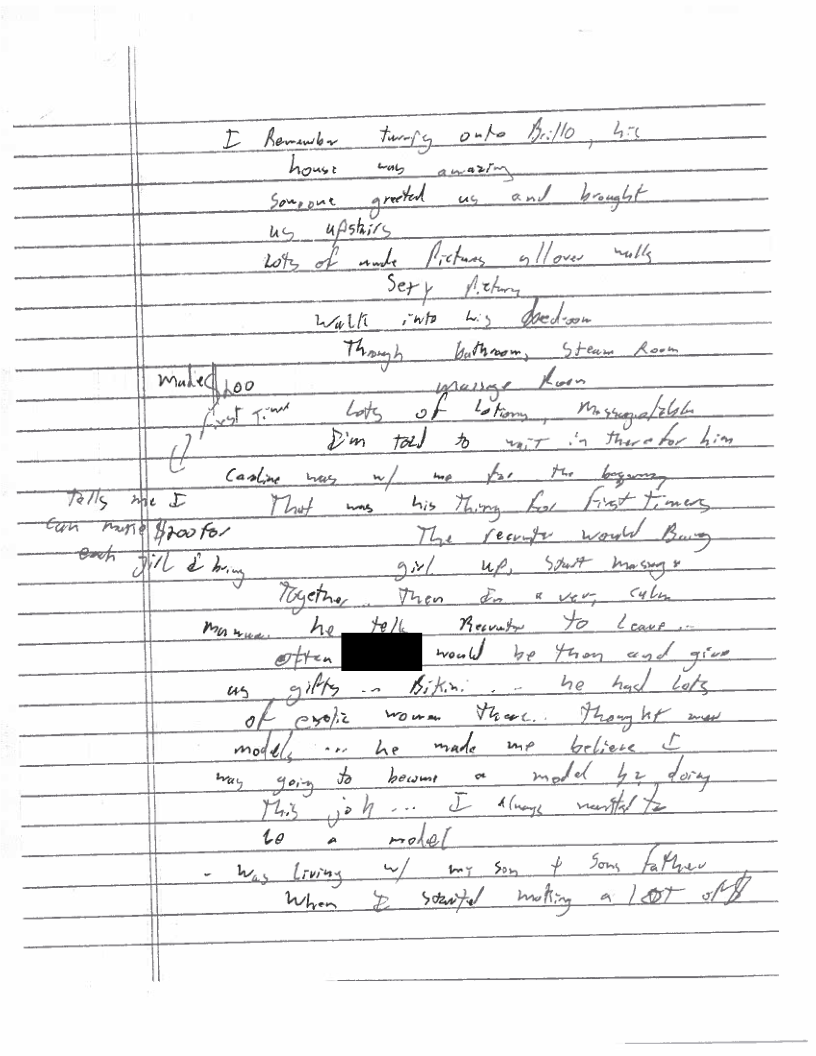 I Remember turning onto Brillo, his
house was amazing
Someone greeted us and brought
us upstairs
Lots of nude Pictures all over walls
Sexy Pictures
Walk into his bedroom
Through bathroom, Steam Room
massage Room
Made $200
first Time
Lots of Lotions, Massage table
I'm told to wait in there for him
Caroline was w/ me for the beginning
tells me I
can make $200 for
each girl I bring
That was his Thing for First Timers
The recruiter would Bring
girl up, Start massage
Together. Then In a very calm
manner he tell Recruiter to Leave ..
often would be then and give
us gifts .. Bikini .. he had Lots
of exotic women there.. Thought
models ... he made me believe I
was going to become a model by doing
This job ... I Always wanted to
be a model
- Was Living w/ my Son + Sons father
When I started making a LOT of $